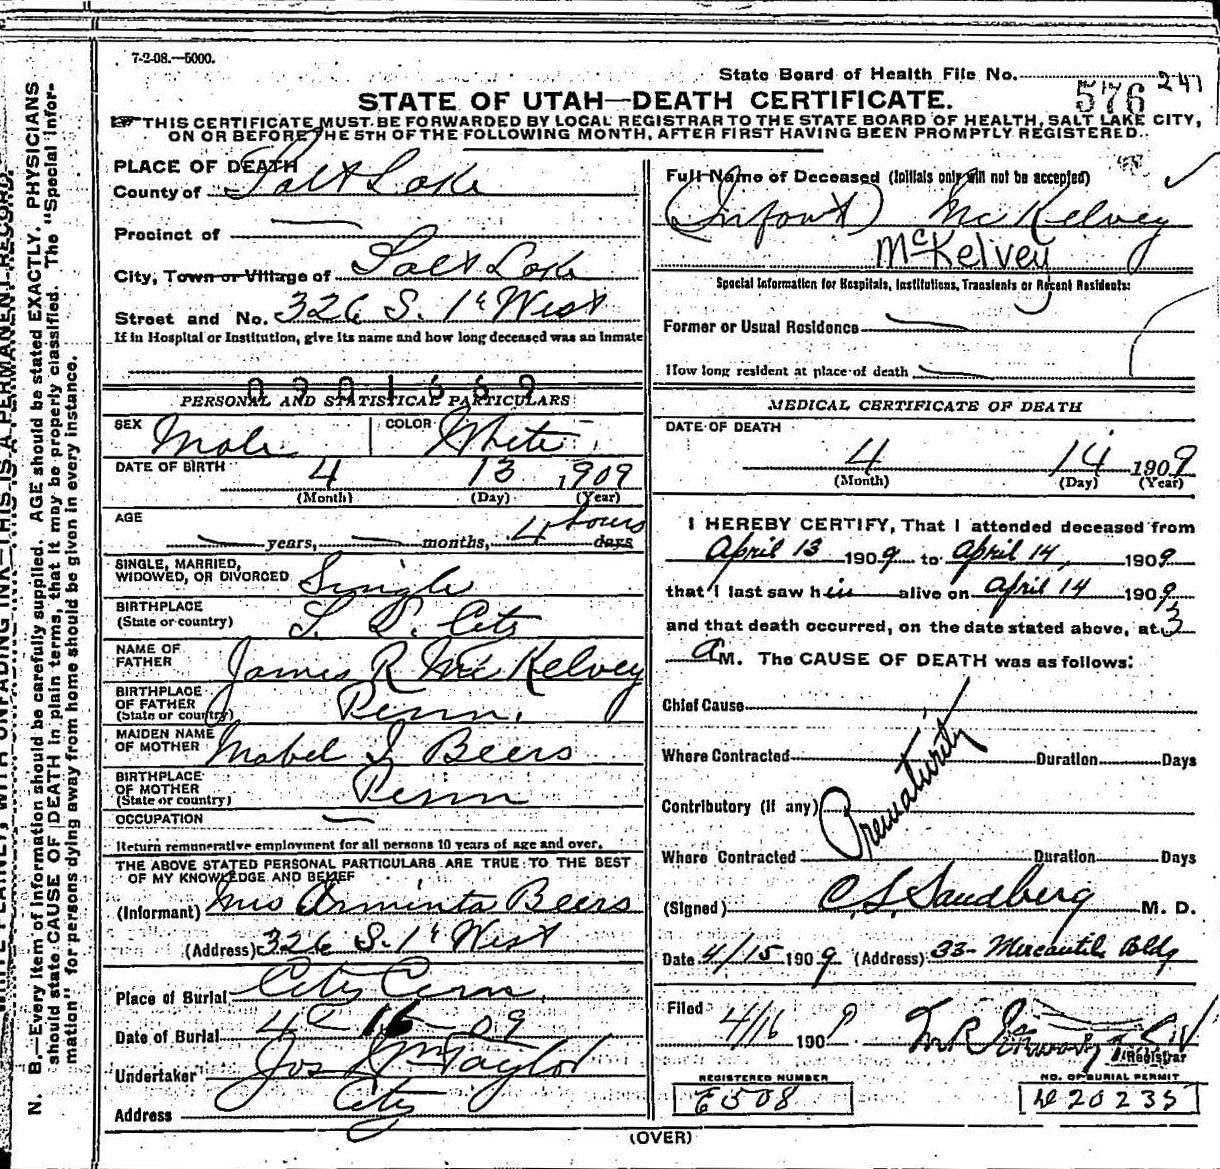 7-2-08.—5000.
State Board of Health File No. 576 241
STATE OF UTAH—DEATH CERTIFICATE.
THIS CERTIFICATE MUST BE FORWARDED BY LOCAL REGISTRAR TO THE STATE BOARD OF HEALTH, SALT LAKE CITY,
ON OR BEFORE THE 5TH OF THE FOLLOWING MONTH, AFTER FIRST HAVING BEEN PROMPTLY REGISTERED.
PLACE OF DEATH
County of Salt Lake
Precinct of —
City, Town or Village of Salt Lake
Street and No. 326 S. 1st West
If in Hospital or Institution, give its name and how long deceased was an inmate
0901669
PERSONAL AND STATISTICAL PARTICULARS
SEX Male COLOR White
DATE OF BIRTH 4 13 1909
(Month) (Day) (Year)
AGE — years, — months, 4 hours days
SINGLE, MARRIED,
WIDOWED, OR DIVORCED Single
BIRTHPLACE
(State or country) S. L. City
NAME OF
FATHER James R McKelvey
BIRTHPLACE
OF FATHER
(State or country) Penn.
MAIDEN NAME
OF MOTHER Mabel I Beers
BIRTHPLACE
OF MOTHER
(State or country) Penn
OCCUPATION —
Return remunerative employment for all persons 10 years of age and over.
THE ABOVE STATED PERSONAL PARTICULARS ARE TRUE TO THE BEST
OF MY KNOWLEDGE AND BELIEF
(Informant) Mrs Arminta Beers
(Address) 326 S. 1st West
Place of Burial City Cem.
Date of Burial 4 16 09
Undertaker Jos Wm Taylor
Address City
Full Name of Deceased (Initials only will not be accepted)
(Infant) McKelvey
McKelvey
Special Information for Hospitals, Institutions, Transients or Recent Residents:
Former or Usual Residence —
How long resident at place of death —
MEDICAL CERTIFICATE OF DEATH
DATE OF DEATH
4 14 1909
(Month) (Day) (Year)
I HEREBY CERTIFY, That I attended deceased from
April 13 1909 to April 14, 1909
that I last saw him alive on April 14 1909
and that death occurred, on the date stated above, at 3
A M. The CAUSE OF DEATH was as follows:
Chief Cause
Where Contracted Duration Days
Contributory (if any) Prematurity
Where Contracted Duration Days
(Signed) C. L. Sandberg M. D.
Date 4/15 1909 (Address) 33- Mercantile Bldg
Filed 4/16 1909
Registrar
REGISTERED NUMBER
E508
NO. OF BURIAL PERMIT
20235
(OVER)
N. B.—Every item of information should be carefully supplied. AGE should be stated EXACTLY. PHYSICIANS
should state CAUSE OF DEATH in plain terms, that it may be properly classified. The "Special Infor-
mation" for persons dying away from home should be given in every instance.
WRITE PLAINLY, WITH UNFADING INK—THIS IS A PERMANENT RECORD.